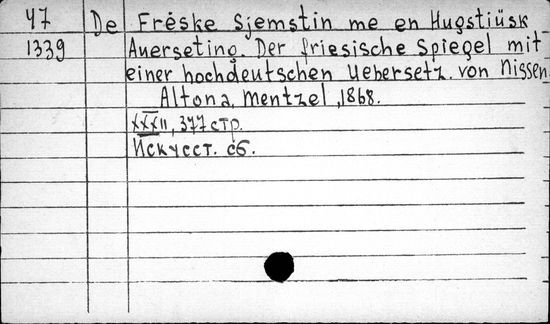 47 De Frėske Sjemstin me en Hugstiüsk
1339 Auerseting. Der friesische Spiegel mit
einer hochdeutschen Uebersetz. von Nissen
Altona, Mentzel, 1868.
XXXII, 377 стр.
Искусст. сб.